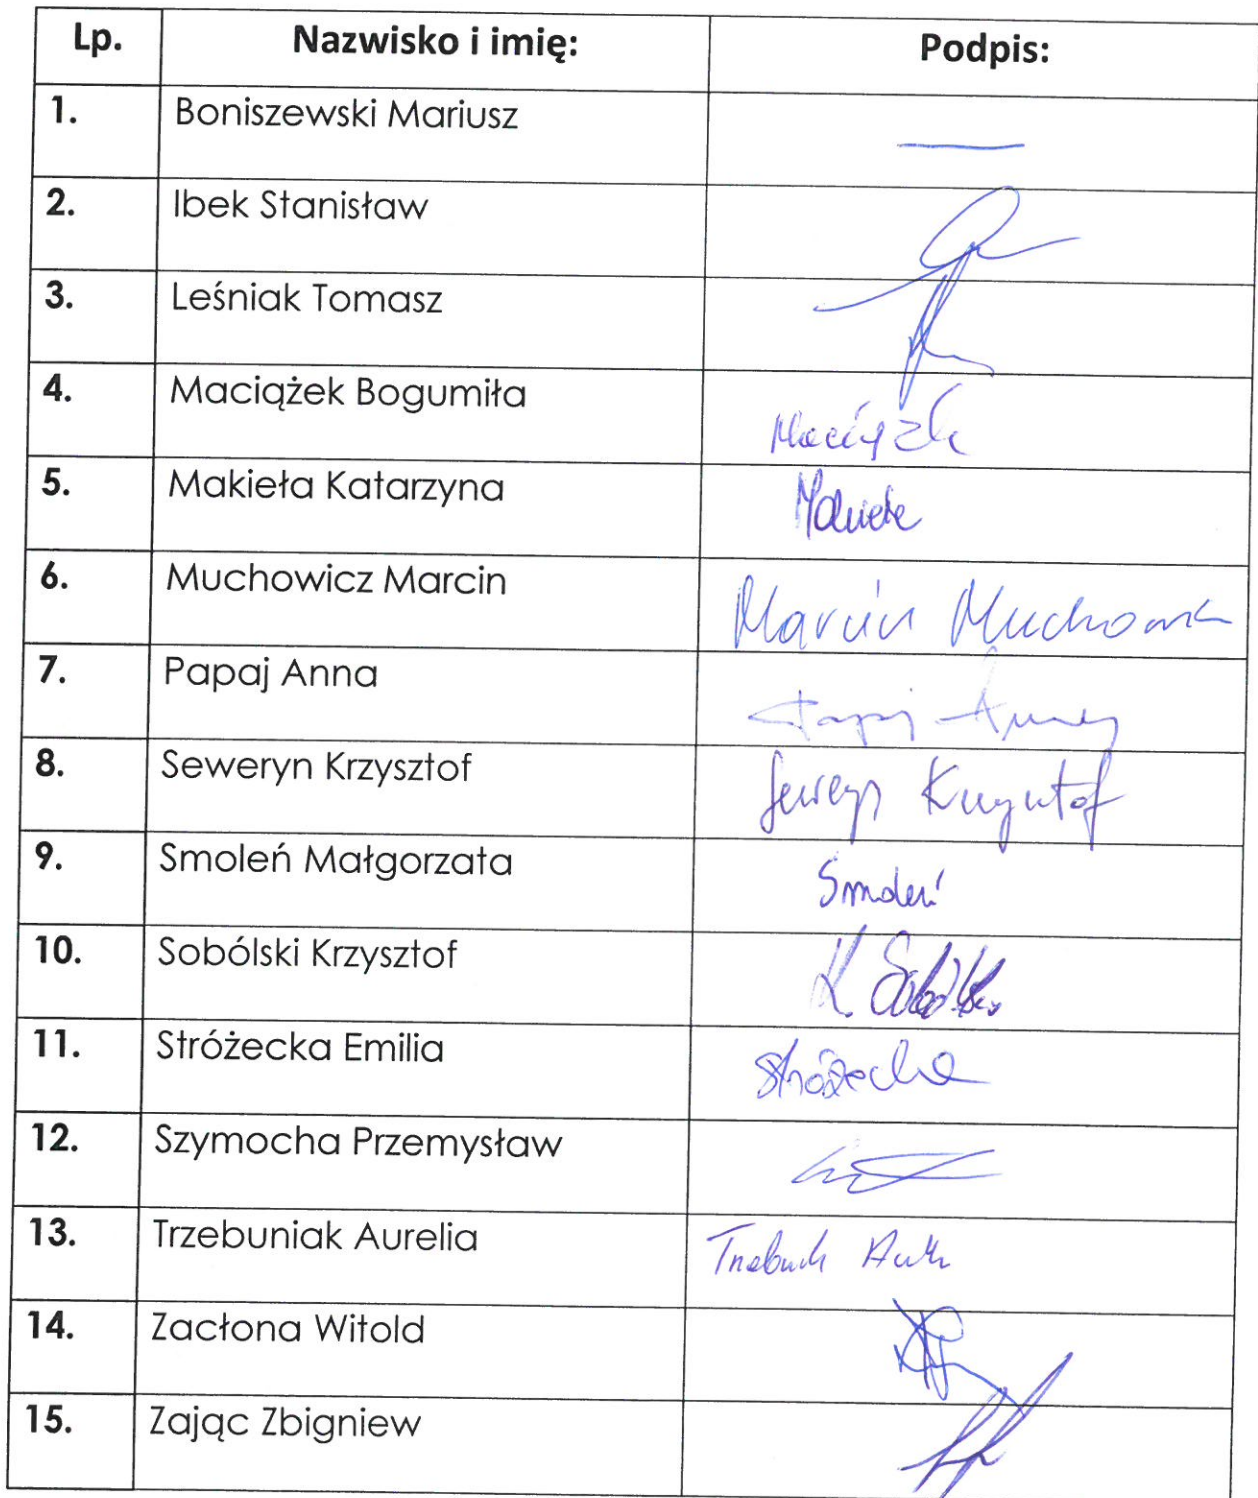 Lp. Nazwisko i imię: Podpis:
1. Boniszewski Mariusz
2. Ibek Stanisław
3. Leśniak Tomasz
4. Maciążek Bogumiła
5. Makieła Katarzyna
6. Muchowicz Marcin Marcin Muchowicz
7. Papaj Anna Papaj Anna
8. Seweryn Krzysztof Seweryn Krzysztof
9. Smoleń Małgorzata Smoleń
10. Sobólski Krzysztof K. Sobólski
11. Stróżecka Emilia Stróżecka
12. Szymocha Przemysław
13. Trzebuniak Aurelia
14. Zacłona Witold
15. Zając Zbigniew